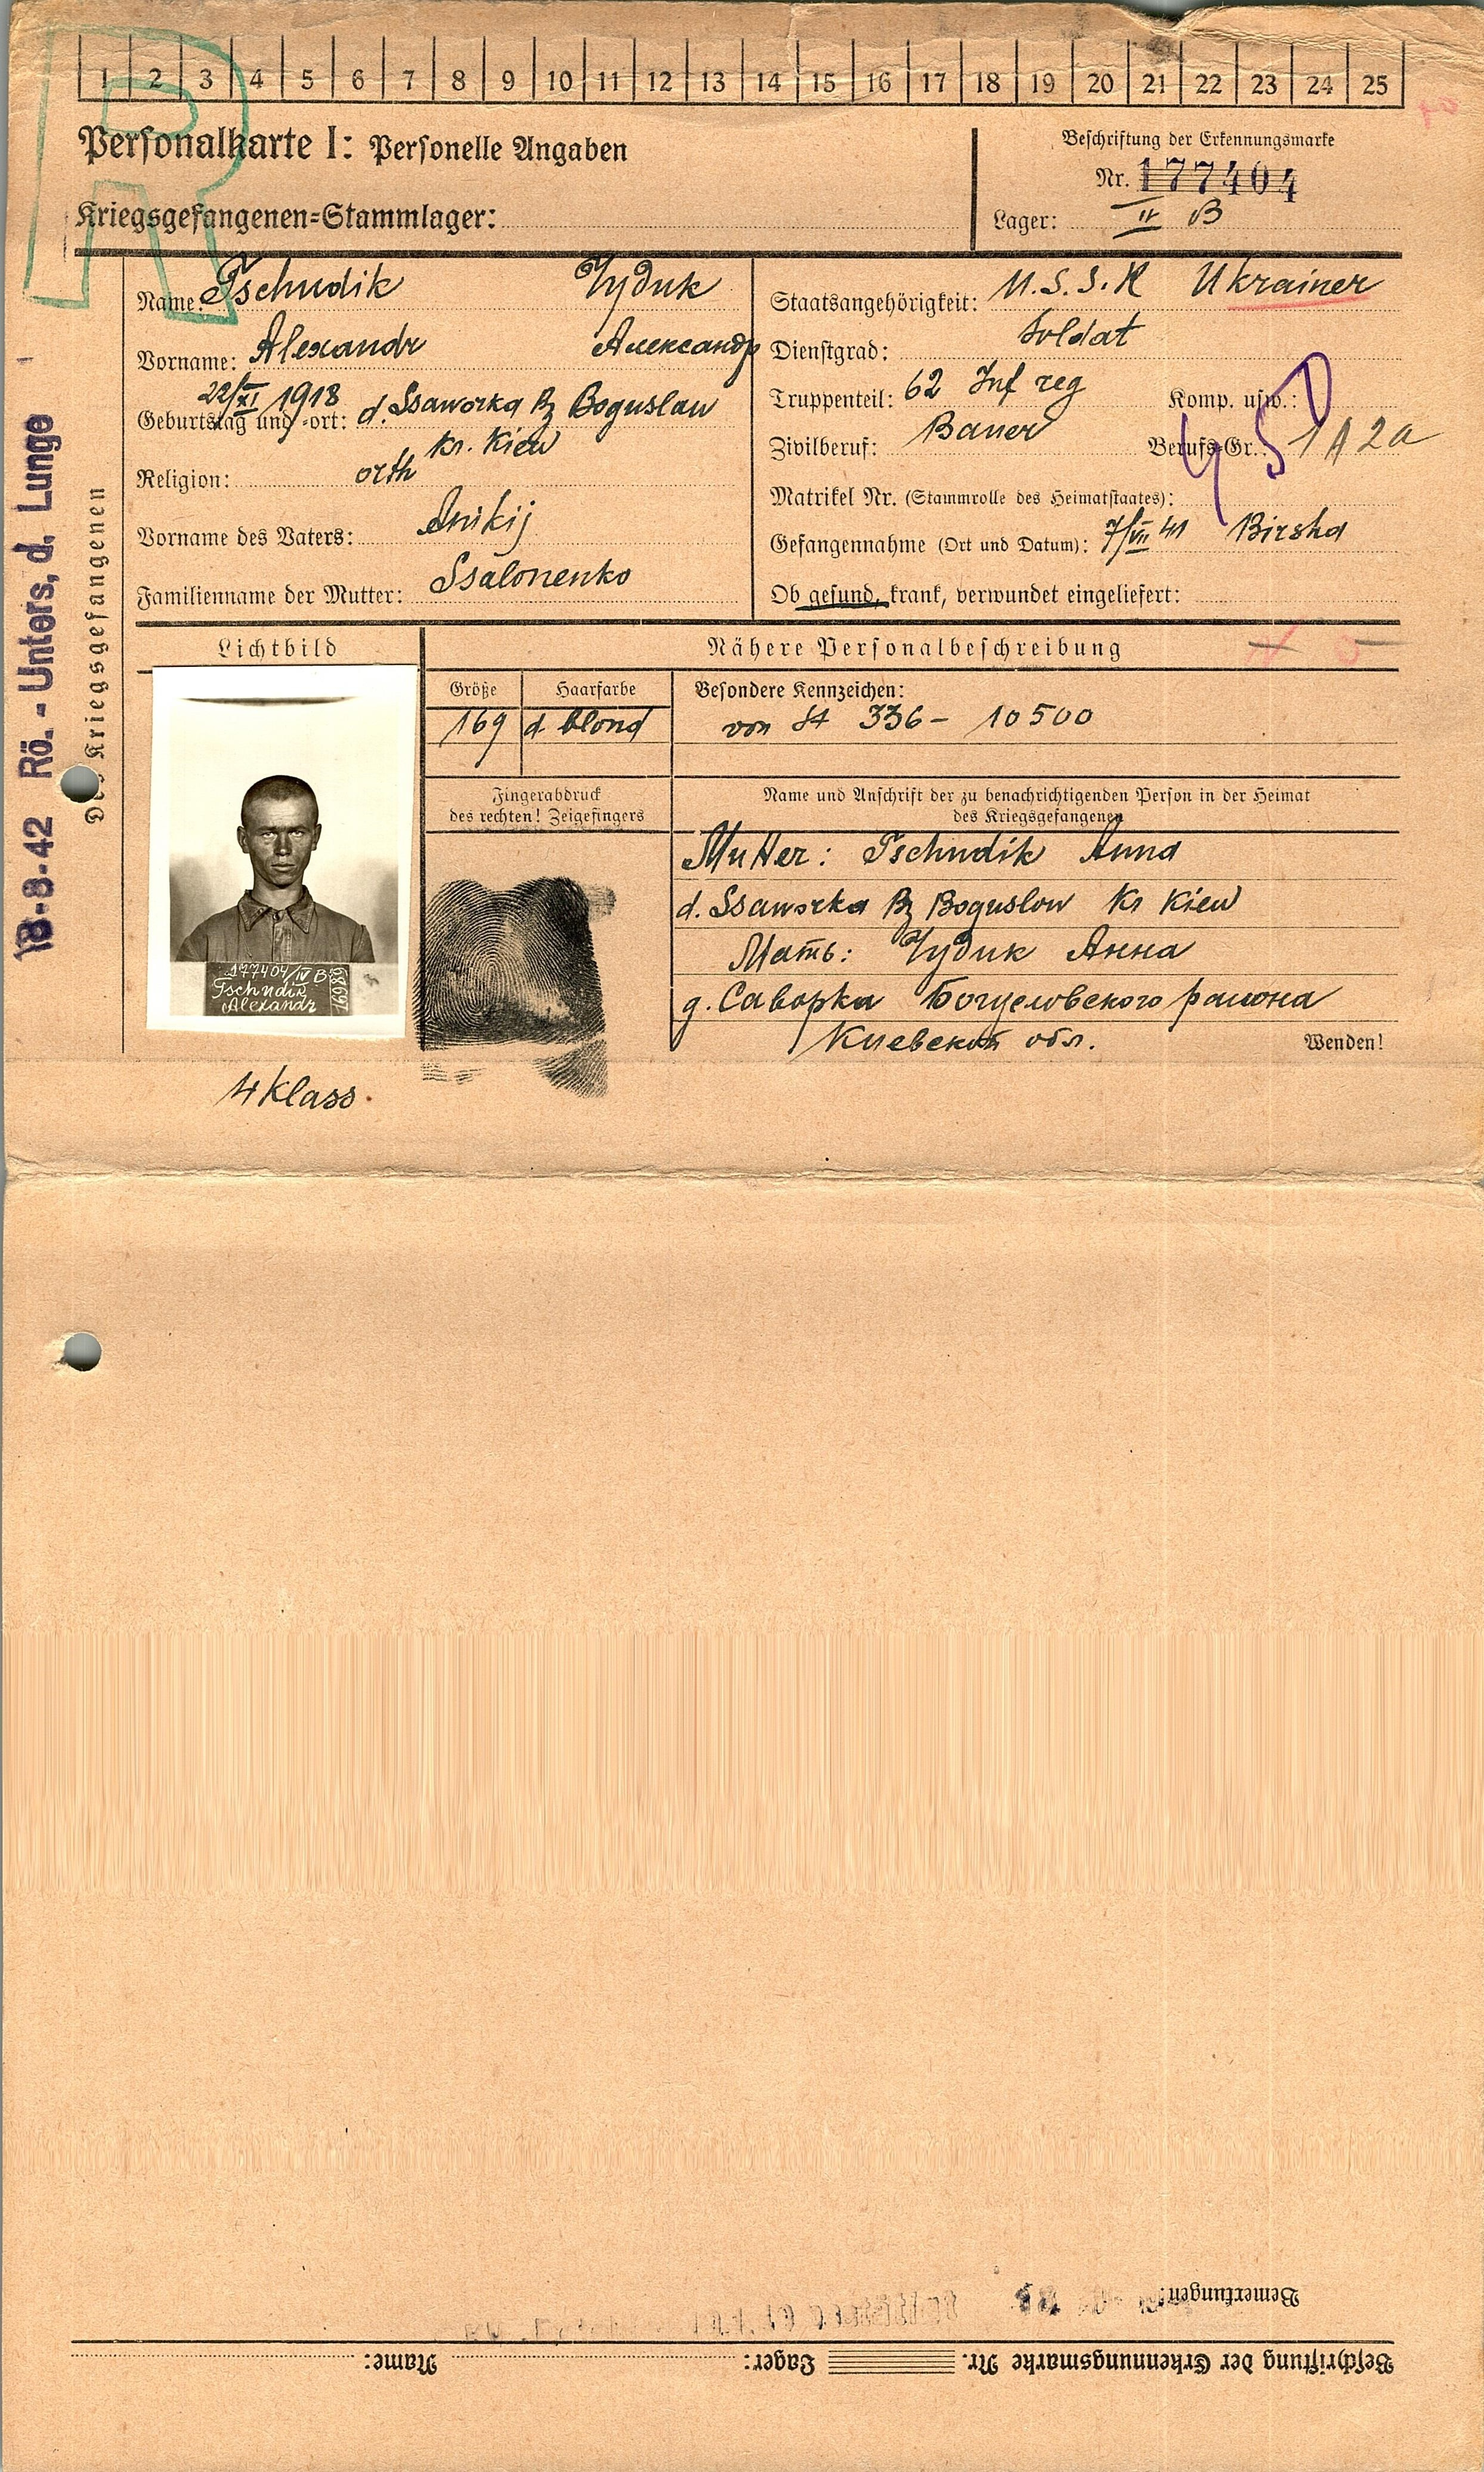 1 2 3 4 5 6 7 8 9 10 11 12 13 14 15 16 17 18 19 20 21 22 23 24 25
R
Personalkarte I: Personelle Angaben
Kriegsgefangenen-Stammlager:
Beschriftung der Erkennungsmarke
Nr. 177404
Lager: IV B
18-8-42 Rö.-Unters, d. Lunge
Des Kriegsgefangenen
Name: Tschudik Чудик
Vorname: Alexandr Александр
Geburtstag und -ort: 22/XI 1918 d. Ssaworka Bz Boguslaw
kr. Kiew
Religion: orth
Vorname des Vaters: Anikij
Familienname der Mutter: Ssalonenko
Staatsangehörigkeit: U.S.S.R Ukrainer
Dienstgrad: Soldat
Truppenteil: 62 Inf reg Komp. usw.:
Zivilberuf: Bauer Berufs-Gr.: 1 A 2a
Matrikel Nr. (Stammrolle des Heimatstaates):
Gefangennahme (Ort und Datum): 7/VII 41 Birsha
Ob gesund, krank, verwundet eingeliefert:
Lichtbild
Nähere Personalbeschreibung
Größe Haarfarbe
169 d. blond
Besondere Kennzeichen:
von St 336 - 10500
Fingerabdruck
des rechten! Zeigefingers
Name und Anschrift der zu benachrichtigenden Person in der Heimat
des Kriegsgefangenen
Mutter: Tschudik Anna
d. Ssaworka Bz Boguslow Kr Kiew
Мать: Чудик Анна
д. Саворка Богуславского района
Киевской обл.
Wenden!
177404/IV B
Tschudik
Alexandr
4 Klass.
Bemerkungen:
Beschriftung der Erkennungsmarke Nr. Lager: Name: